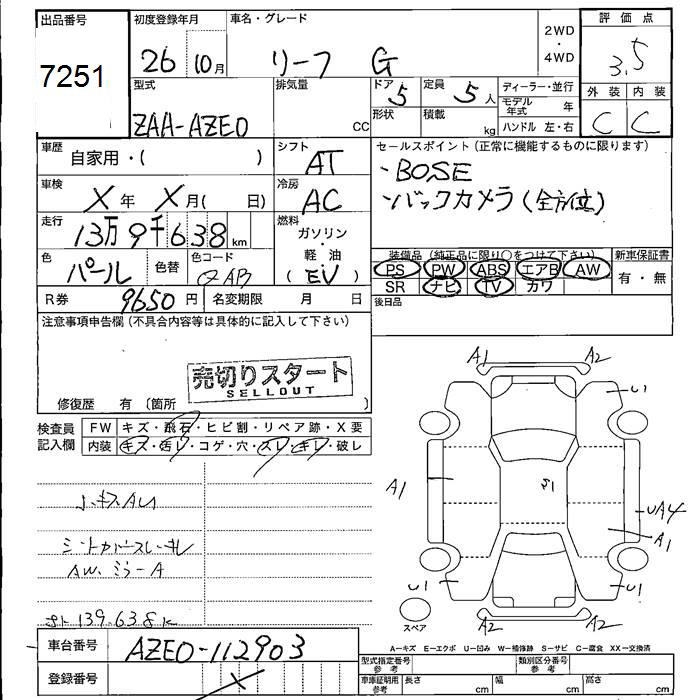 出品番号
7251
初度登録年月
26 10月
車名・グレード
リーフ G
2WD
・
4WD
評価点
3.5
外装 内装
C C
型式
ZAA-AZE0
排気量
CC
ドア 5
形状
定員 5人
積載 kg
ディーラー・並行
モデル年式 年
ハンドル 左・右
車歴 自家用・( )
シフト AT
車検 X年 X月( 日)
冷房 AC
走行 13万9千638km
燃料
ガソリン
・
軽油
(EV)
色 パール 色替
色コード QAB
R券 9650円 名変期限 月 日
セールスポイント(正常に機能するものに限ります)
・BOSE
・バックカメラ(全方位)
装備品(純正品に限り○をつけて下さい)
PS PW ABS エアB AW
SR ナビ TV カワ
新車保証書
有・無
後日品
注意事項申告欄(不具合内容等は具体的に記入して下さい)
売切りスタート
SELLOUT
修復歴 有 〔箇所 〕
検査員記入欄
FW キズ・飛石・ヒビ割・リペア跡・X要
内装 キズ・汚レ・コゲ・穴・スレ・キレ・破レ
小キズAU
シートカバースレ・キレ
AW.ミラーA
139.638K
A1 A2
U1
A1
S1
UA4
A1
U1
U1
A2 A2
スペア
A-キズ E-エクボ U-凹み W-補修跡 S-サビ C-腐食 XX-交換済
車台番号 AZE0-112903
登録番号 X
型式指定番号 参考
類別区分番号 参考
車庫証明用 参考
長さ cm
幅 cm
高さ cm